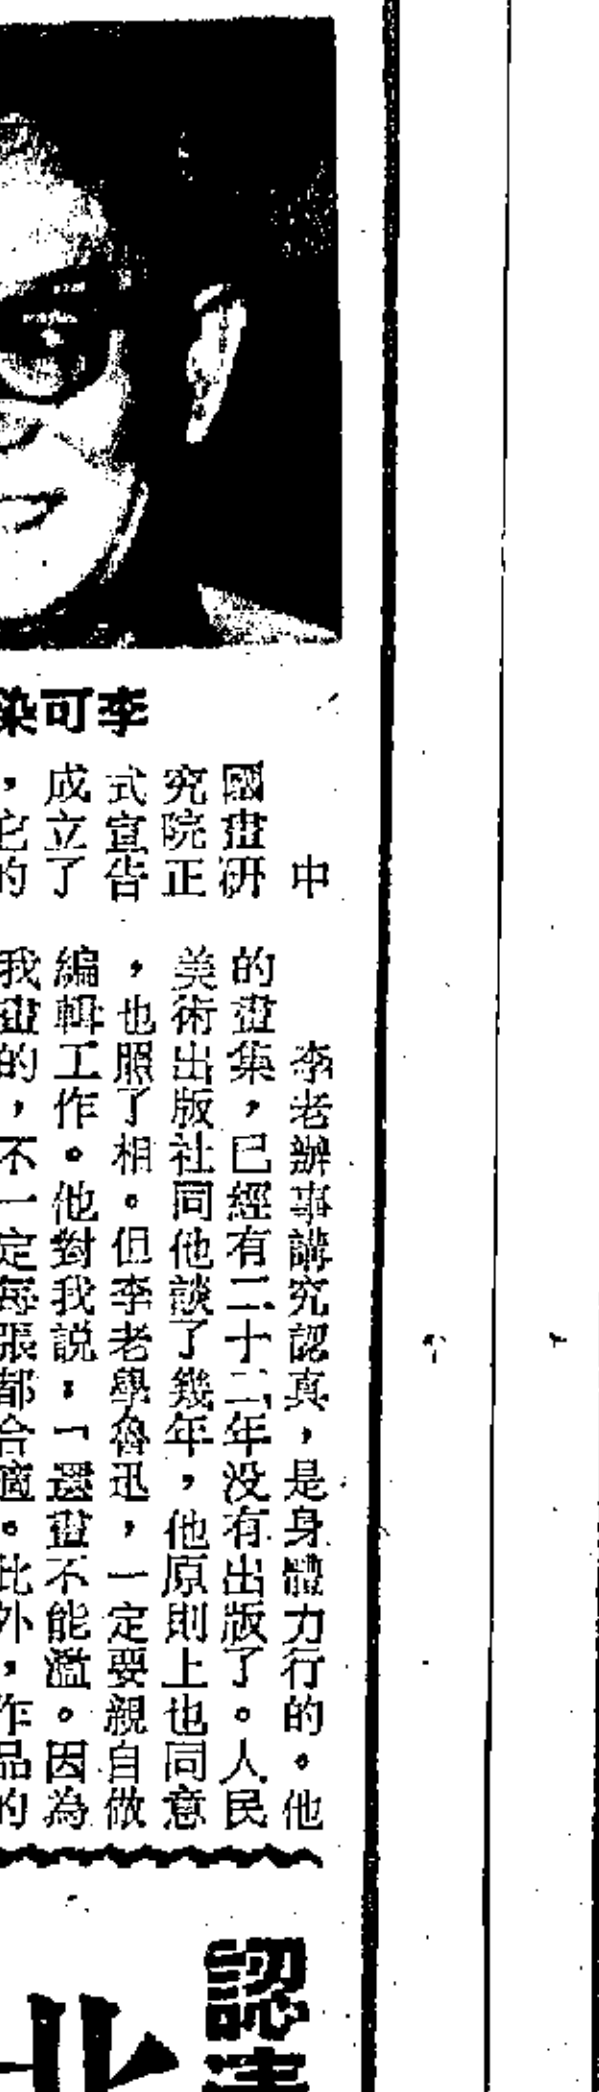 李可染
中
國畫研
究院正
式宣告
成立了
，它的
李老辦事講究認真，是身體力行的。他
的畫集，已經有二十二年没有出版了。人民
美術出版社同他談了幾年，他原則上也同意
，也照了相。但李老學魯迅，一定要親自做
編輯工作。他對我説：「選畫不能濫。因為
我畫的，不一定每張都合適。此外，作品的
認真
北